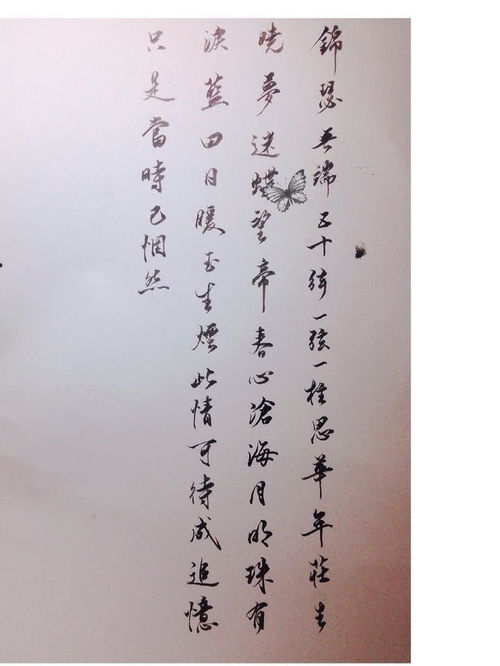 錦瑟無端五十弦一弦一柱思華年莊生
曉夢迷蝶望帝春心滄海月明珠有
淚藍田日暖玉生煙此情可待成追憶
只是當時已惘然